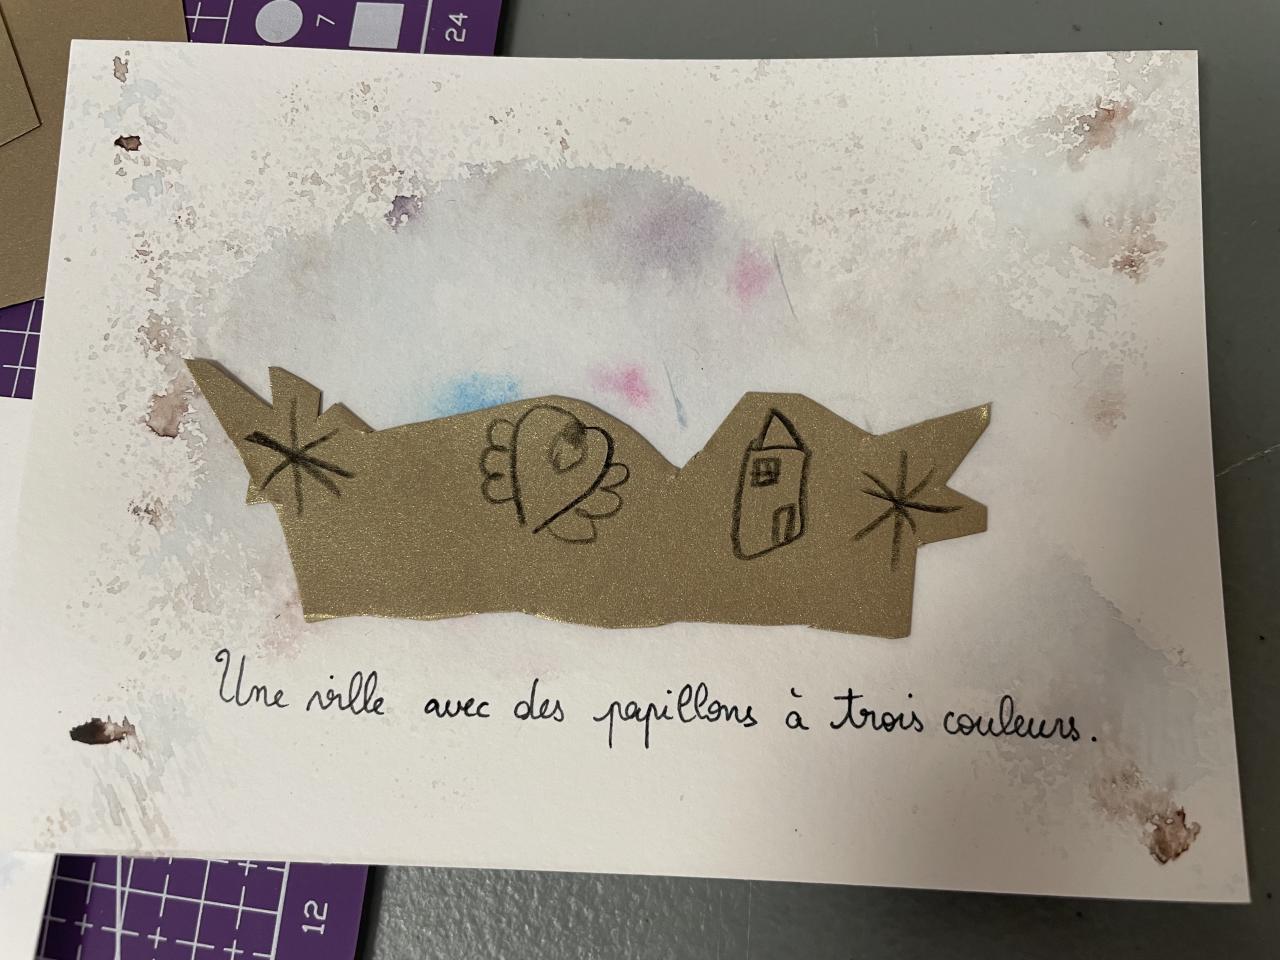 7
24
Une ville avec des papillons à trois couleurs.
12